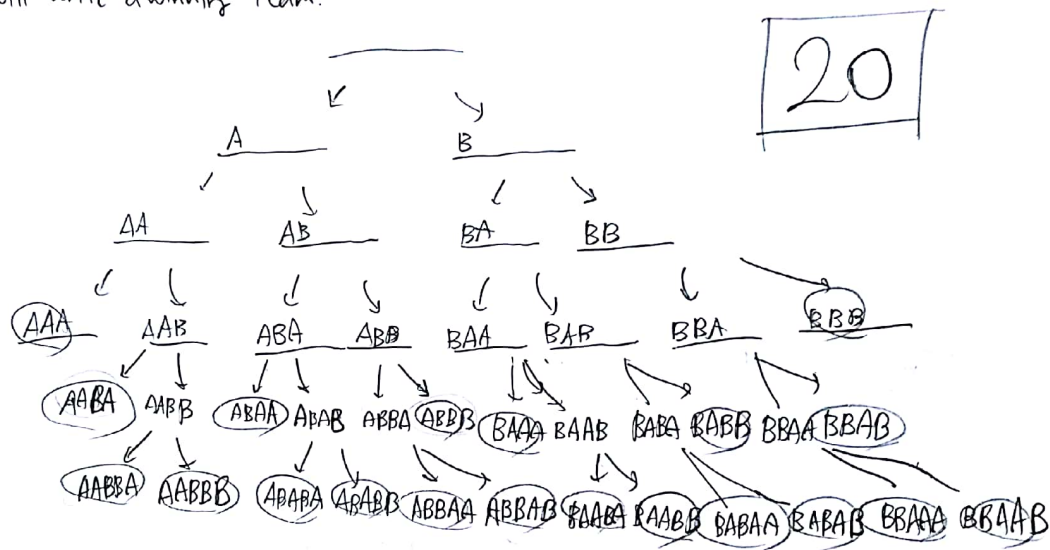 20
A B
AA AB BA BB
AAA AAB ABA ABB BAA BAB BBA BBB
AABA AABB ABAA ABAB ABBA ABBB BAAA BAAB BABA BABB BBAA BBAB
AABBA AABBB ABABA ABABB ABBAA ABBAB BAABA BAABB BABAA BABAB BBAAA BBAAB